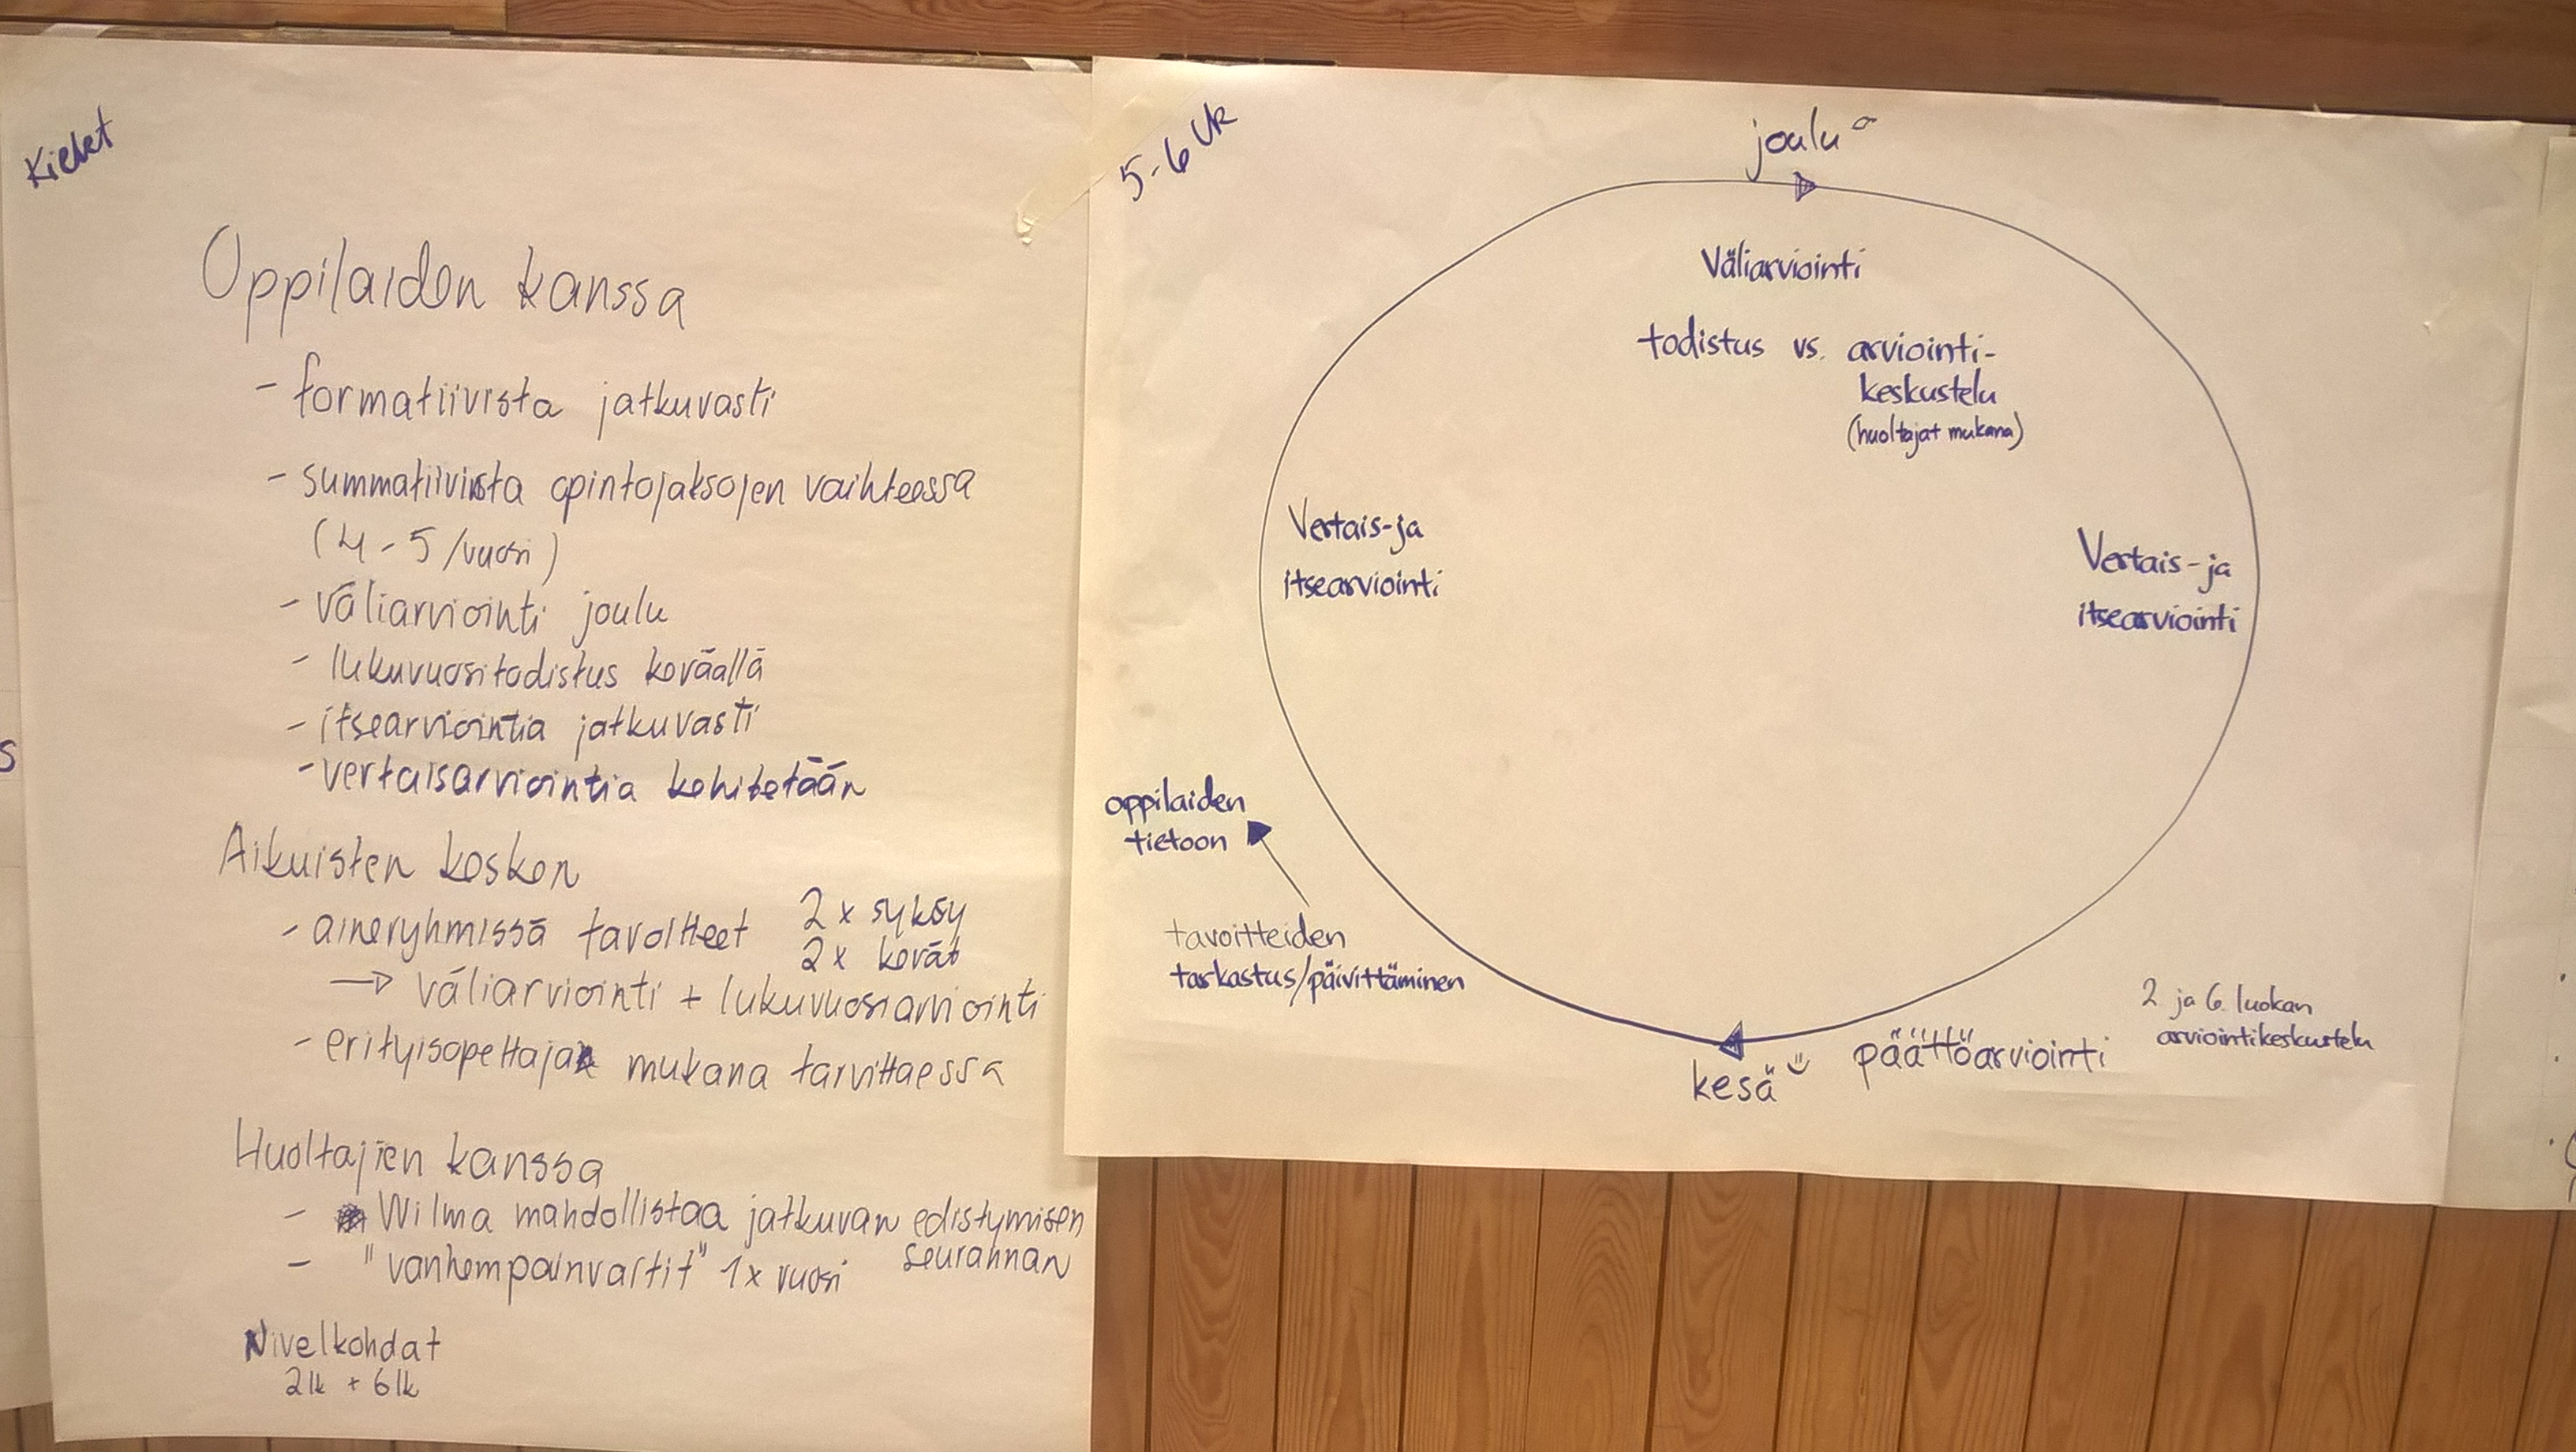 Kielet
Oppilaiden kanssa
- formatiivista jatkuvasti
- summatiivista opintojaksojen vaihteessa
(4-5/vuosi)
- väliarviointi joulu
- lukuvuositodistus keväällä
- itsearviointia jatkuvasti
- vertaisarviointia kehitetään
Aikuisten kesken
- aineryhmissä tavoitteet 2 x syksy
2 x kevät
→ väliarviointi + lukuvuosiarviointi
- erityisopettaja mukana tarvittaessa
Huoltajien kanssa
- Wilma mahdollistaa jatkuvan edistymisen
seurannan
- "vanhempainvartit" 1x vuosi
Nivelkohdat
2lk + 6lk
5-6 lk
joulu
Väliarviointi
todistus vs. arviointi-
keskustelu
(huoltajat mukana)
Vertais- ja
itsearviointi
Vertais- ja
itsearviointi
oppilaiden
tietoon
tavoitteiden
tarkastus/päivittäminen
kesä
päättöarviointi
2 ja 6. luokan
arviointikeskustelu